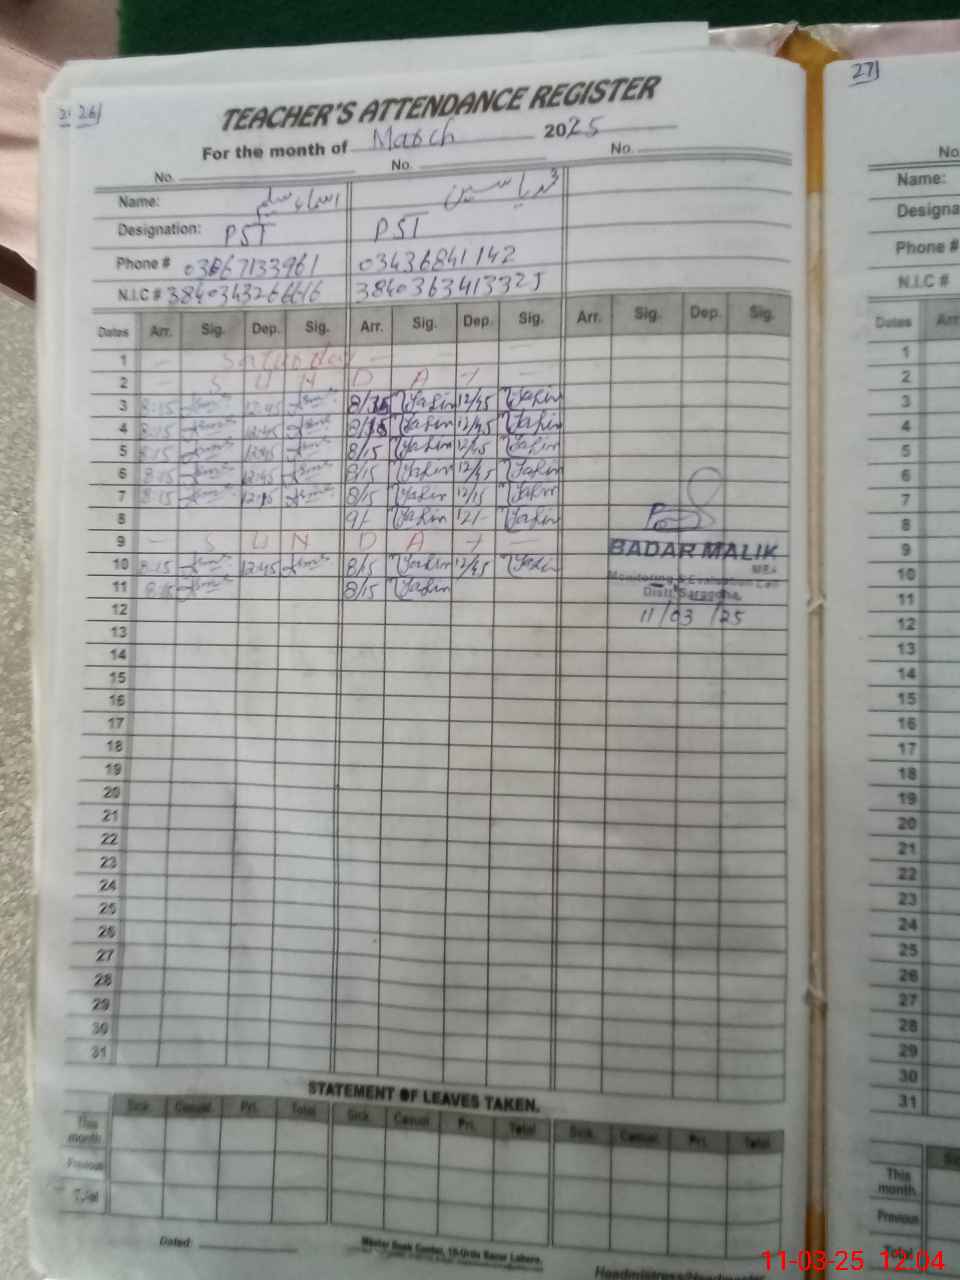 26/
27/
TEACHER'S ATTENDANCE REGISTER
For the month of March 2025
No. No. No.
Name: اسماء سلیم
Designation: PST PST
Phone # 03067133961 03436841142
N.I.C # 3840343266616 3840363413325
Dates Arr. Sig. Dep. Sig. Arr. Sig. Dep. Sig. Arr. Sig. Dep. Sig.
1 — Saturday — —
2 — S U N D A Y —
3 8:15 12:45 8/15 Yasin 12/45 Yasin
4 8:15 12:45 8/15 Yasin 12/45 Yasin
5 8:15 12:45 8/15 Yasin 12/45 Yasin
6 8:15 12:45 8/15 Yasin 12/45 Yasin
7 8:15 12:15 8/15 Yasin 12/15 Yasin
8 9/- Yasin 12/- Yasin
9 — S U N D A Y —
10 8:15 12:45 8/15 Yasin 12/45 Yasin
11 8:15 8/15 Yasin
BADAR MALIK
MEA
Monitoring & Evaluation Cell
Distt. Sargodha
11/03/25
12
13
14
15
16
17
18
19
20
21
22
23
24
25
26
27
28
29
30
31
STATEMENT OF LEAVES TAKEN.
Sick. Casual. Pri. Total Sick. Casual. Pri. Total Sick. Casual. Pri. Total
This month
Previous
Total
Dated:
Master Book Center, 10-Urdu Bazar Lahore.
No
Name:
Designa
Phone #
N.I.C #
Dates Arr
1
2
3
4
5
6
7
8
9
10
11
12
13
14
15
16
17
18
19
20
21
22
23
24
25
26
27
28
29
30
31
This month
Previous
Total
11-03-25 12:04